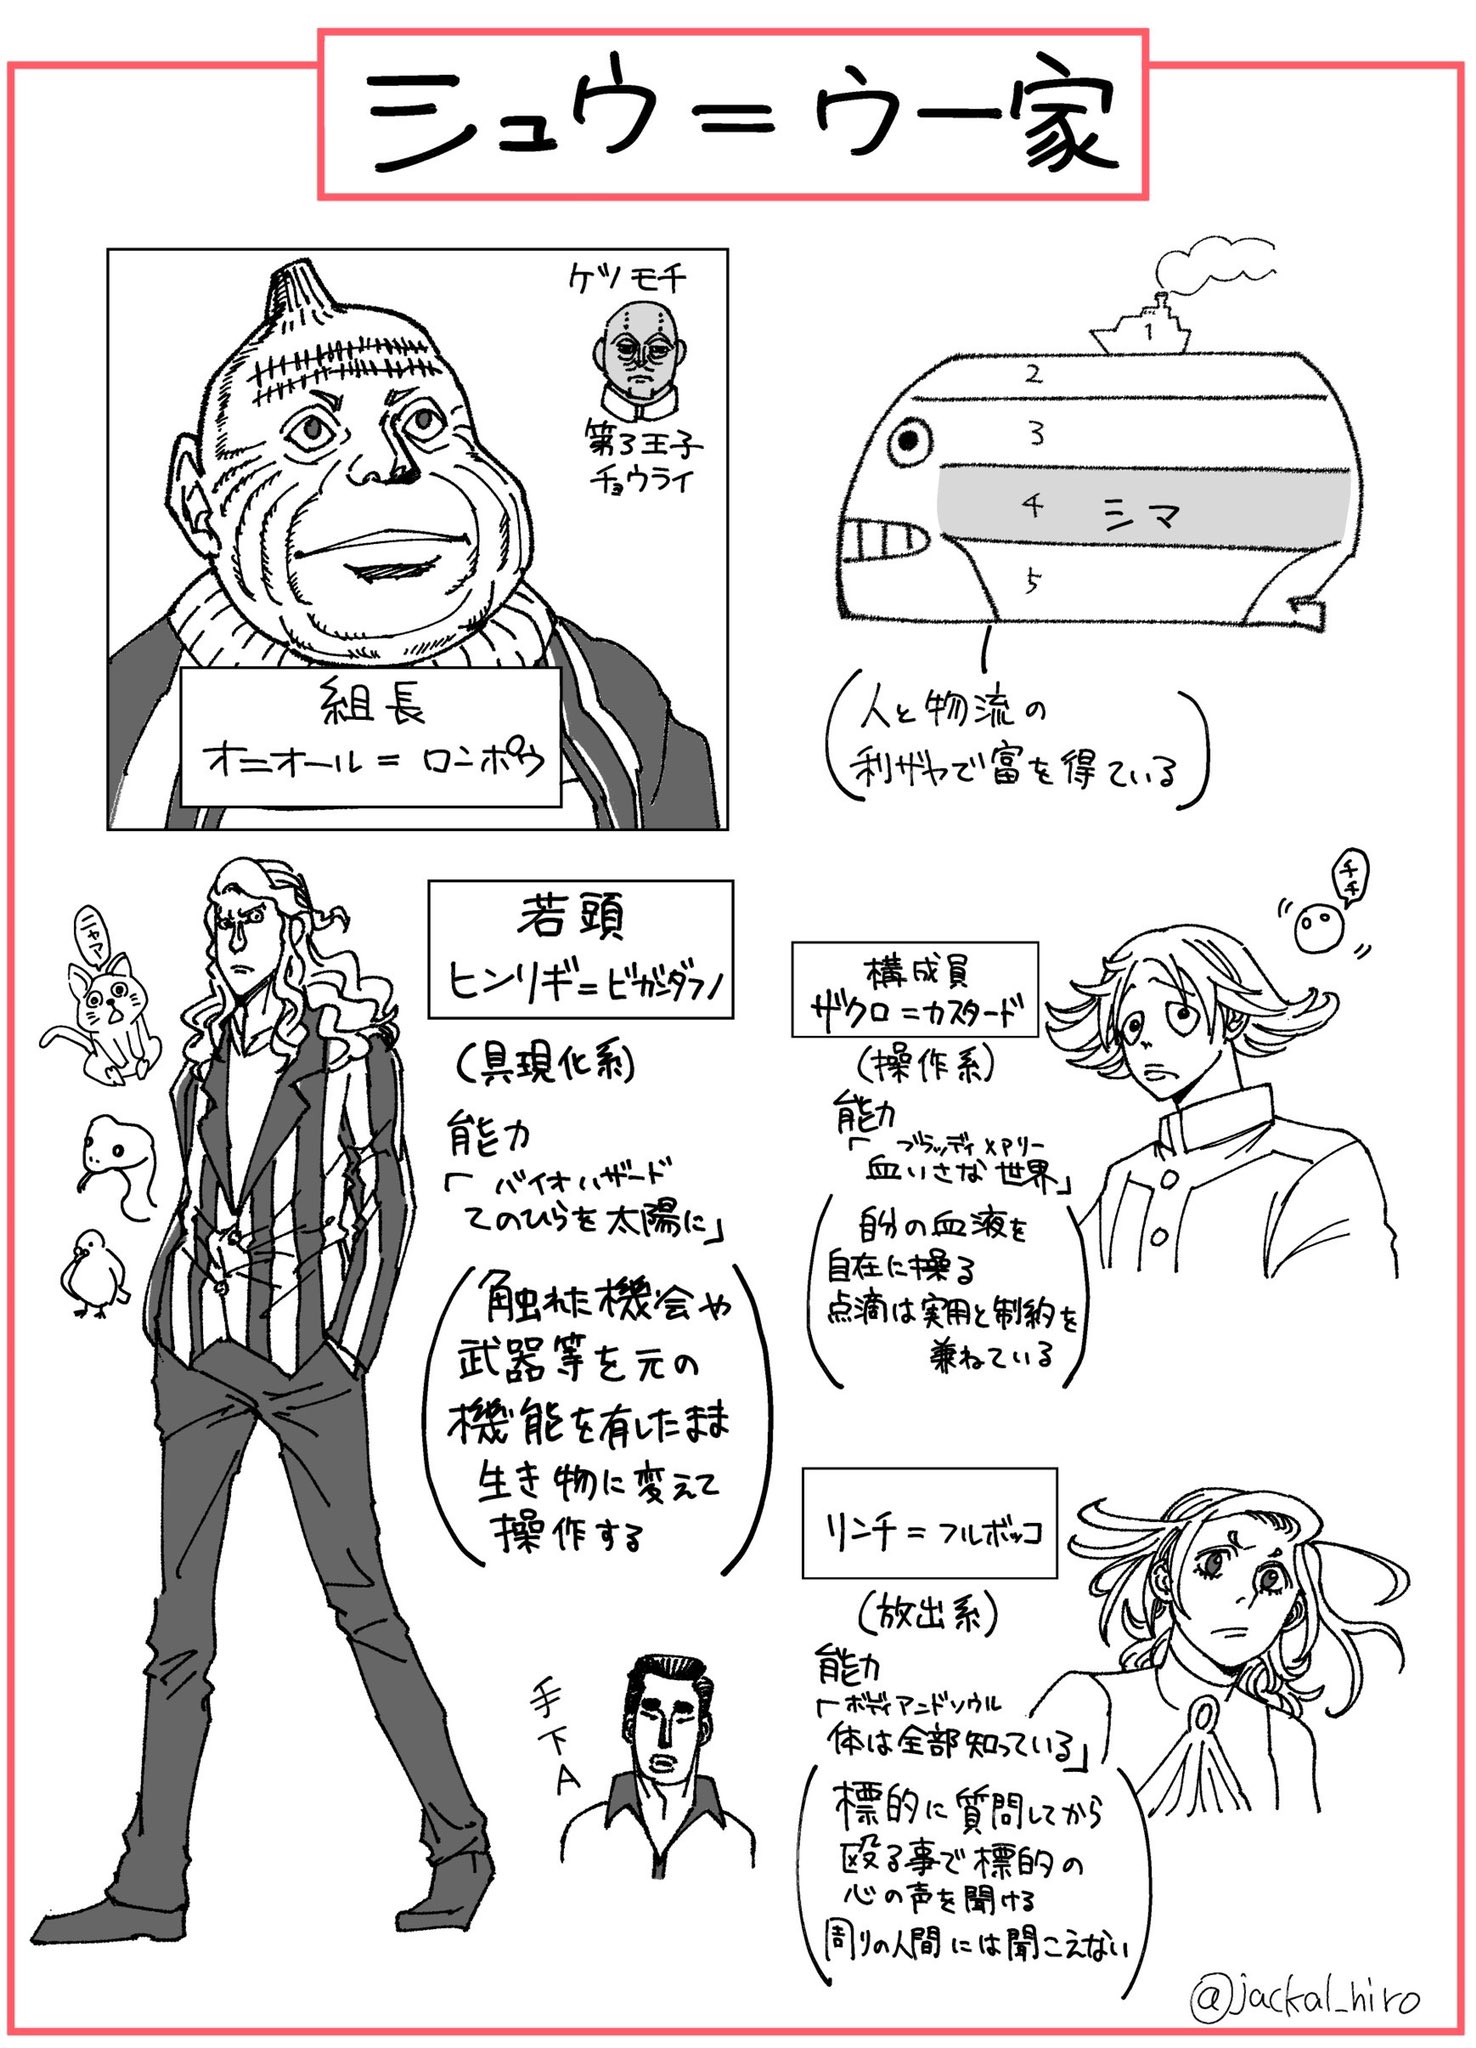 シュウ=ウ一家
ケツモチ
第3王子
チョウライ
組長
オニオール=ロンポウ
1
2
3
4 シマ
5
人と物流の
利ザヤで富を得ている
若頭
ヒンリギ=ビガンダフノ
(具現化系)
能力
バイオハザード
「てのひらを太陽に」
触れた機会や
武器等を元の
機能を有したまま
生き物に変えて
操作する
ニャアー
チチ
構成員
ザクロ=カスタード
(操作系)
能力
ブラッディメアリー
「血いさな世界」
自分の血液を
自在に操る
点滴は実用と制約を
兼ねている
リンチ=フルボッコ
(放出系)
能力
ボディアンドソウル
「体は全部知っている」
標的に質問してから
殴る事で標的の
心の声を聞ける
周りの人間には聞こえない
手下A
@jackal_hiro